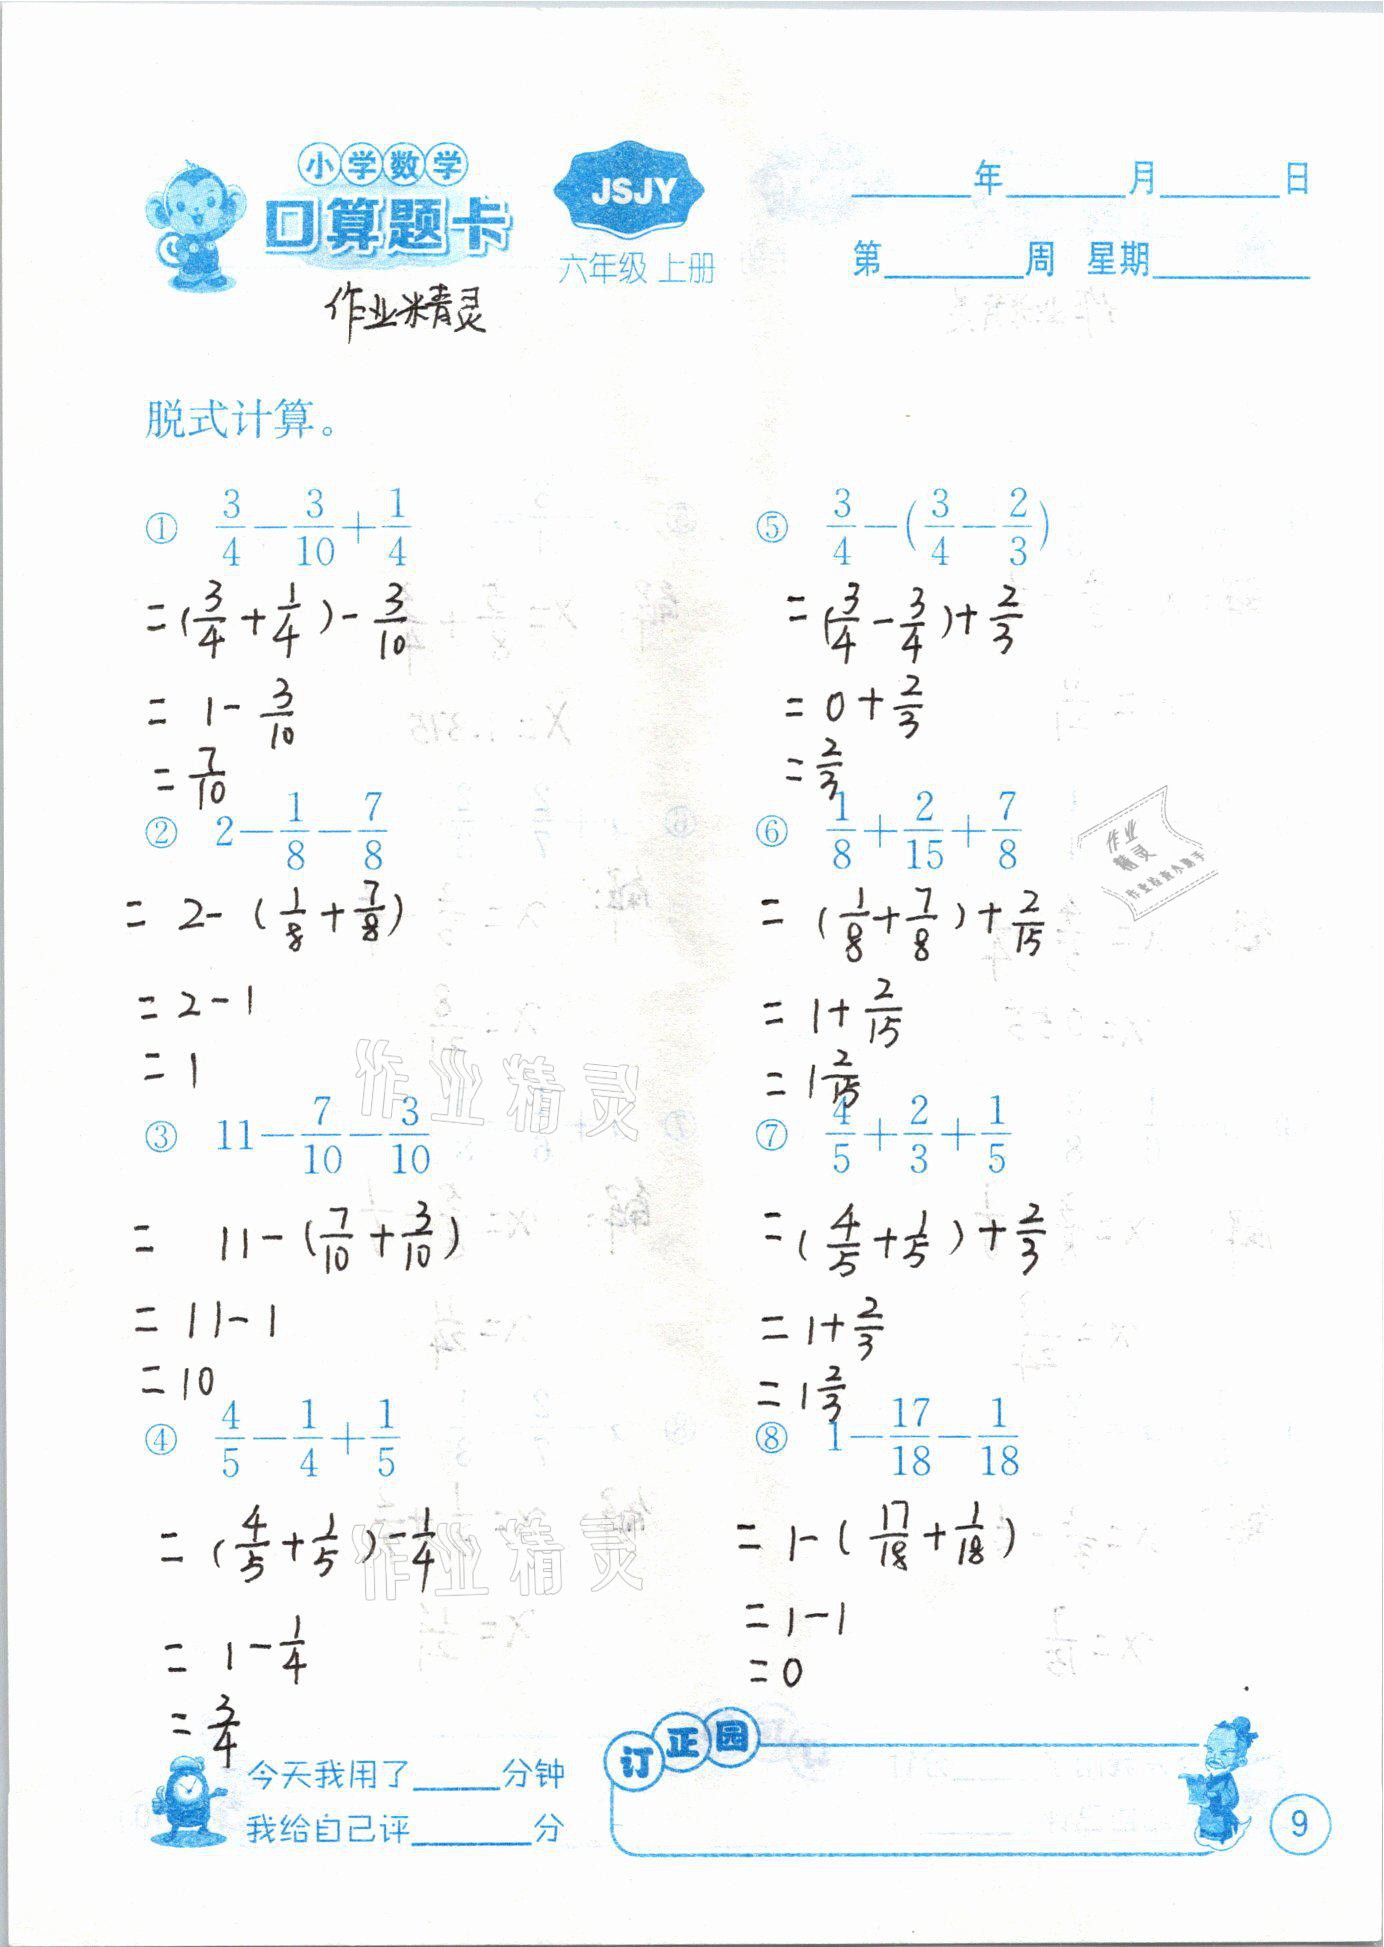 小学数学
口算题卡
JSJY
六年级 上册
____年____月____日
第____周 星期____
作业精灵
脱式计算。
① 3/4-3/10+1/4
=(3/4+1/4)-3/10
=1-3/10
=7/10
② 2-1/8-7/8
=2-(1/8+7/8)
=2-1
=1
③ 11-7/10-3/10
=11-(7/10+3/10)
=11-1
=10
④ 4/5-1/4+1/5
=(4/5+1/5)-1/4
=1-1/4
=3/4
⑤ 3/4-(3/4-2/3)
=(3/4-3/4)+2/3
=0+2/3
=2/3
⑥ 1/8+2/15+7/8
=(1/8+7/8)+2/15
=1+2/15
=1 2/15
⑦ 4/5+2/3+1/5
=(4/5+1/5)+2/3
=1+2/3
=1 2/3
⑧ 1-17/18-1/18
=1-(17/18+1/18)
=1-1
=0
作业
精灵
作业精灵
作业精灵
今天我用了____分钟
我给自己评____分
订正园
9